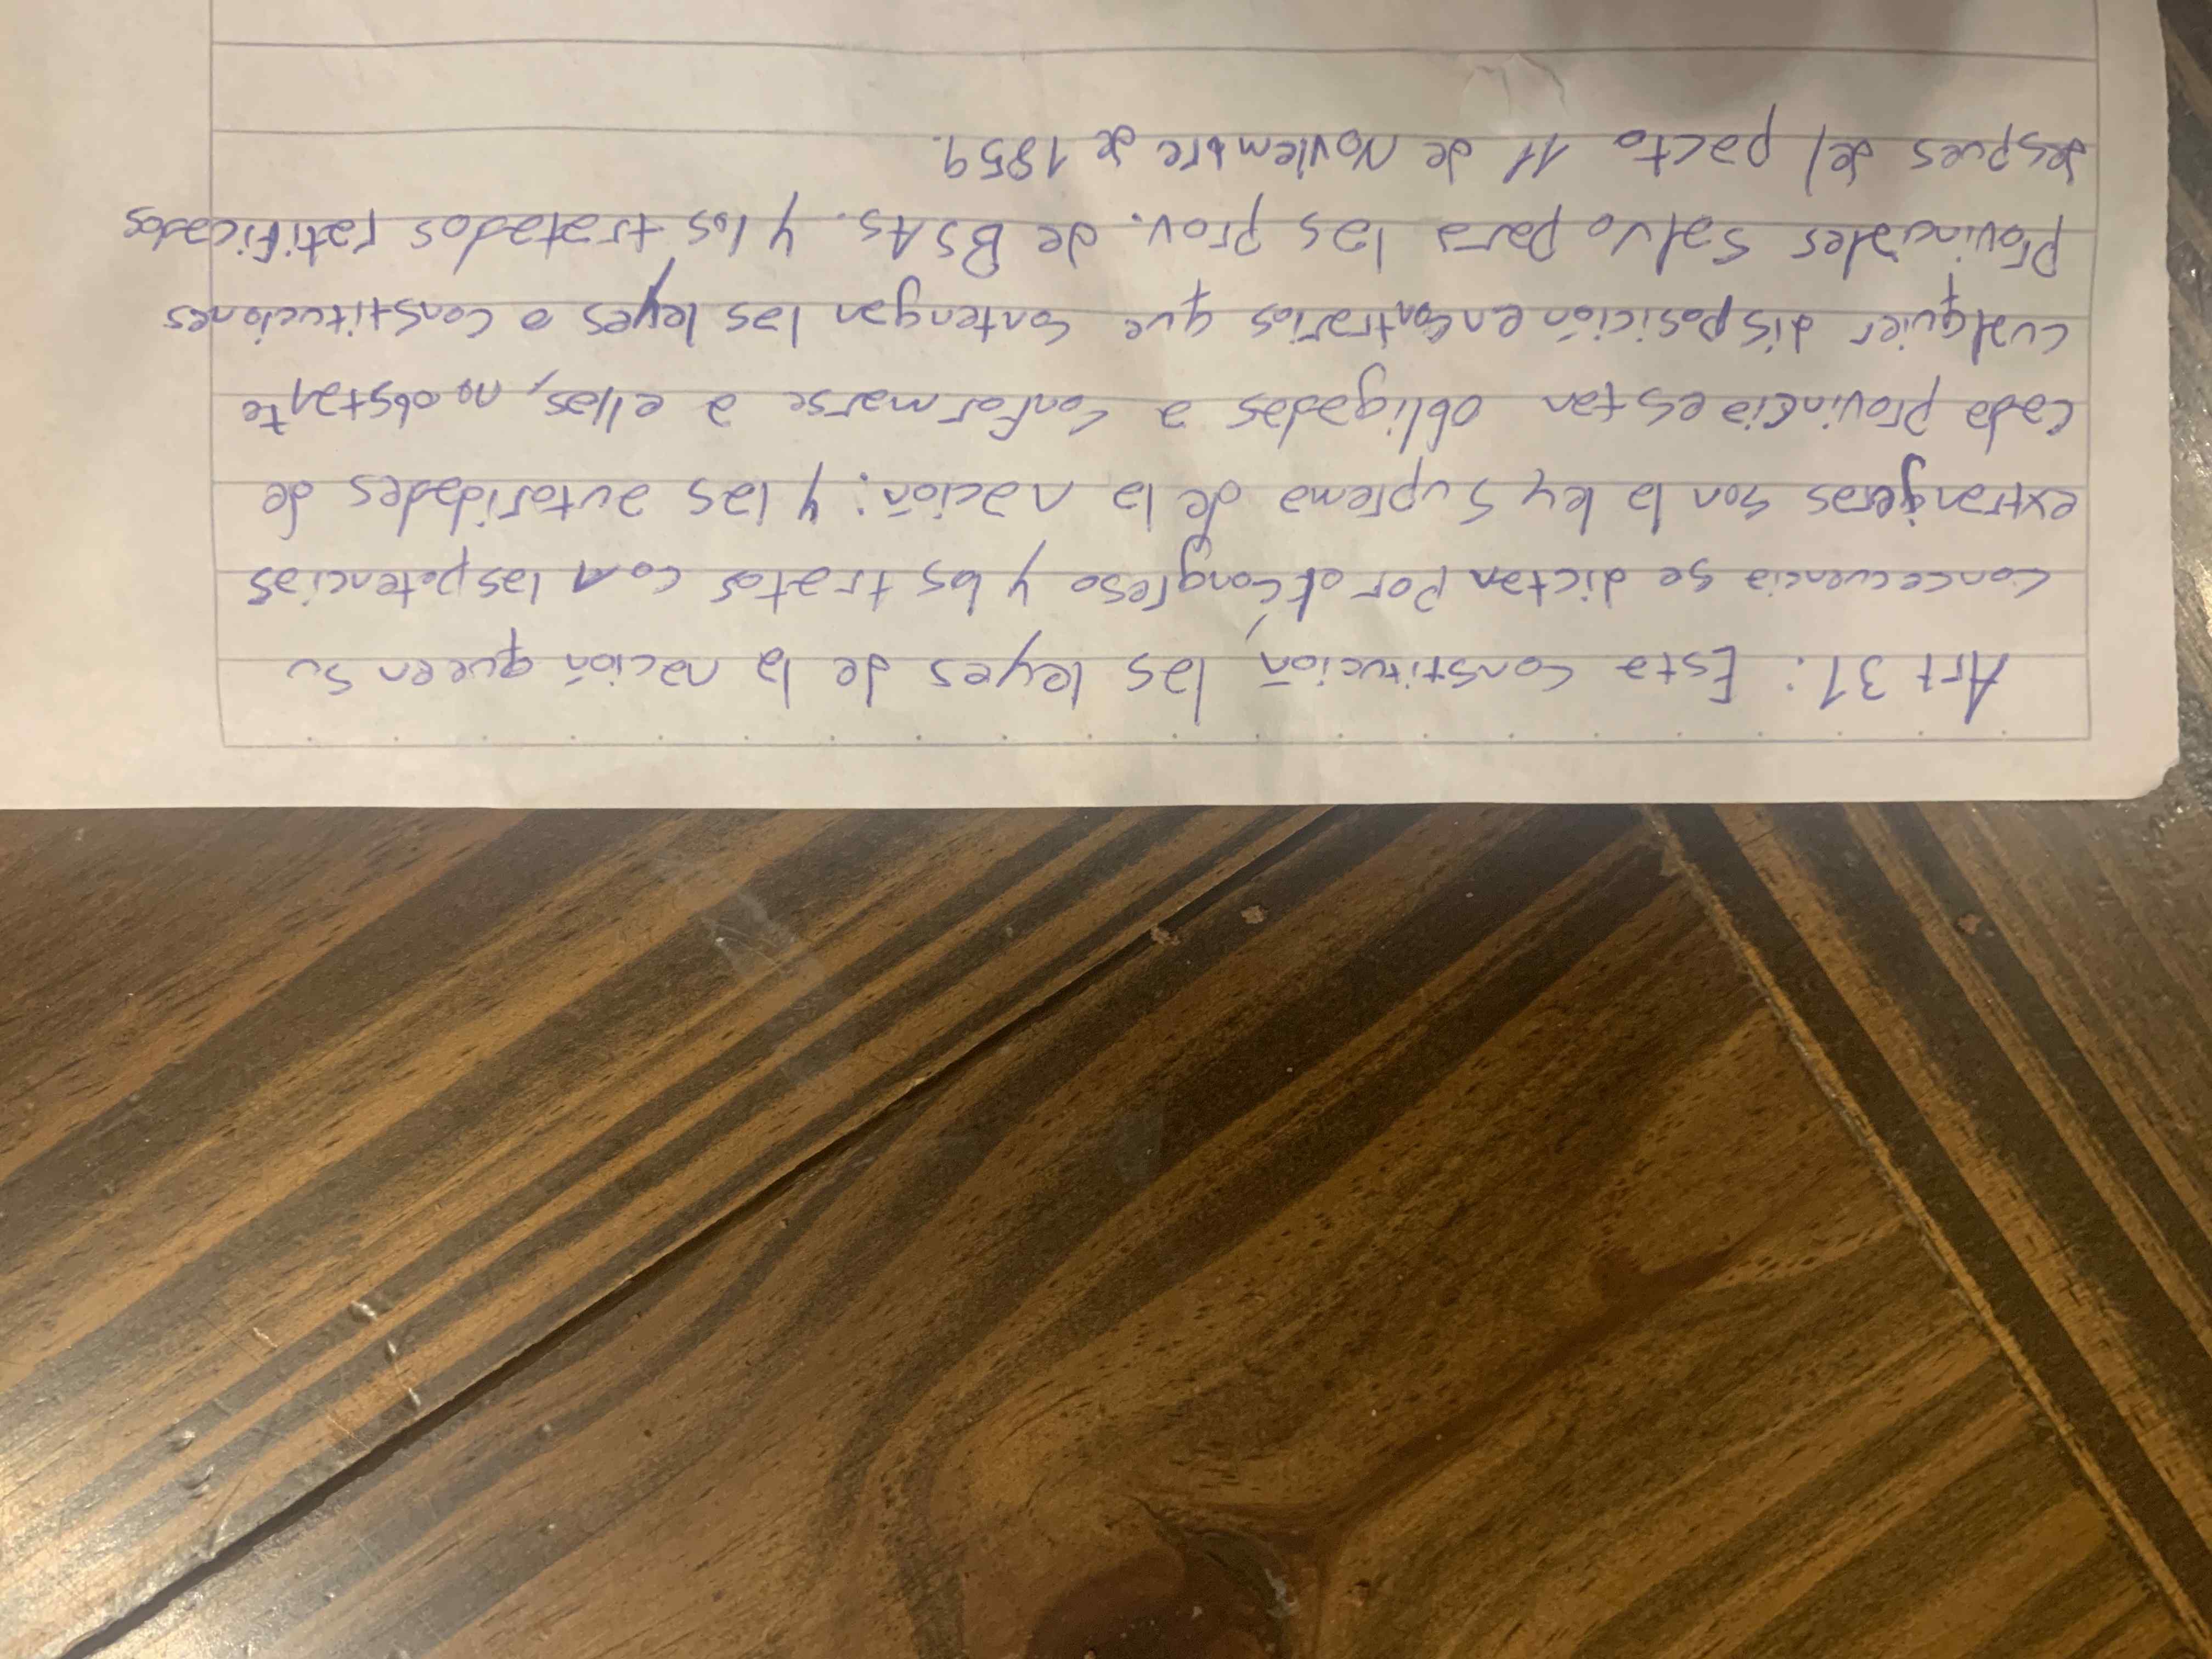 Art 31: Esta constitución, las leyes de la nación que en su
concecuencia se dictan por el Congreso y los tratos con las potencias
extrangeras son la ley suprema de la nación; y las autoridades de
cada provincia estan obligadas a conformarse a ellas, no obstante
cualquier disposición en contrarios que contengan las leyes o constituciones
provinciales salvo para las prov. de BsAs. y los tratados ratificados
despues del pacto 11 de Noviembre de 1859.